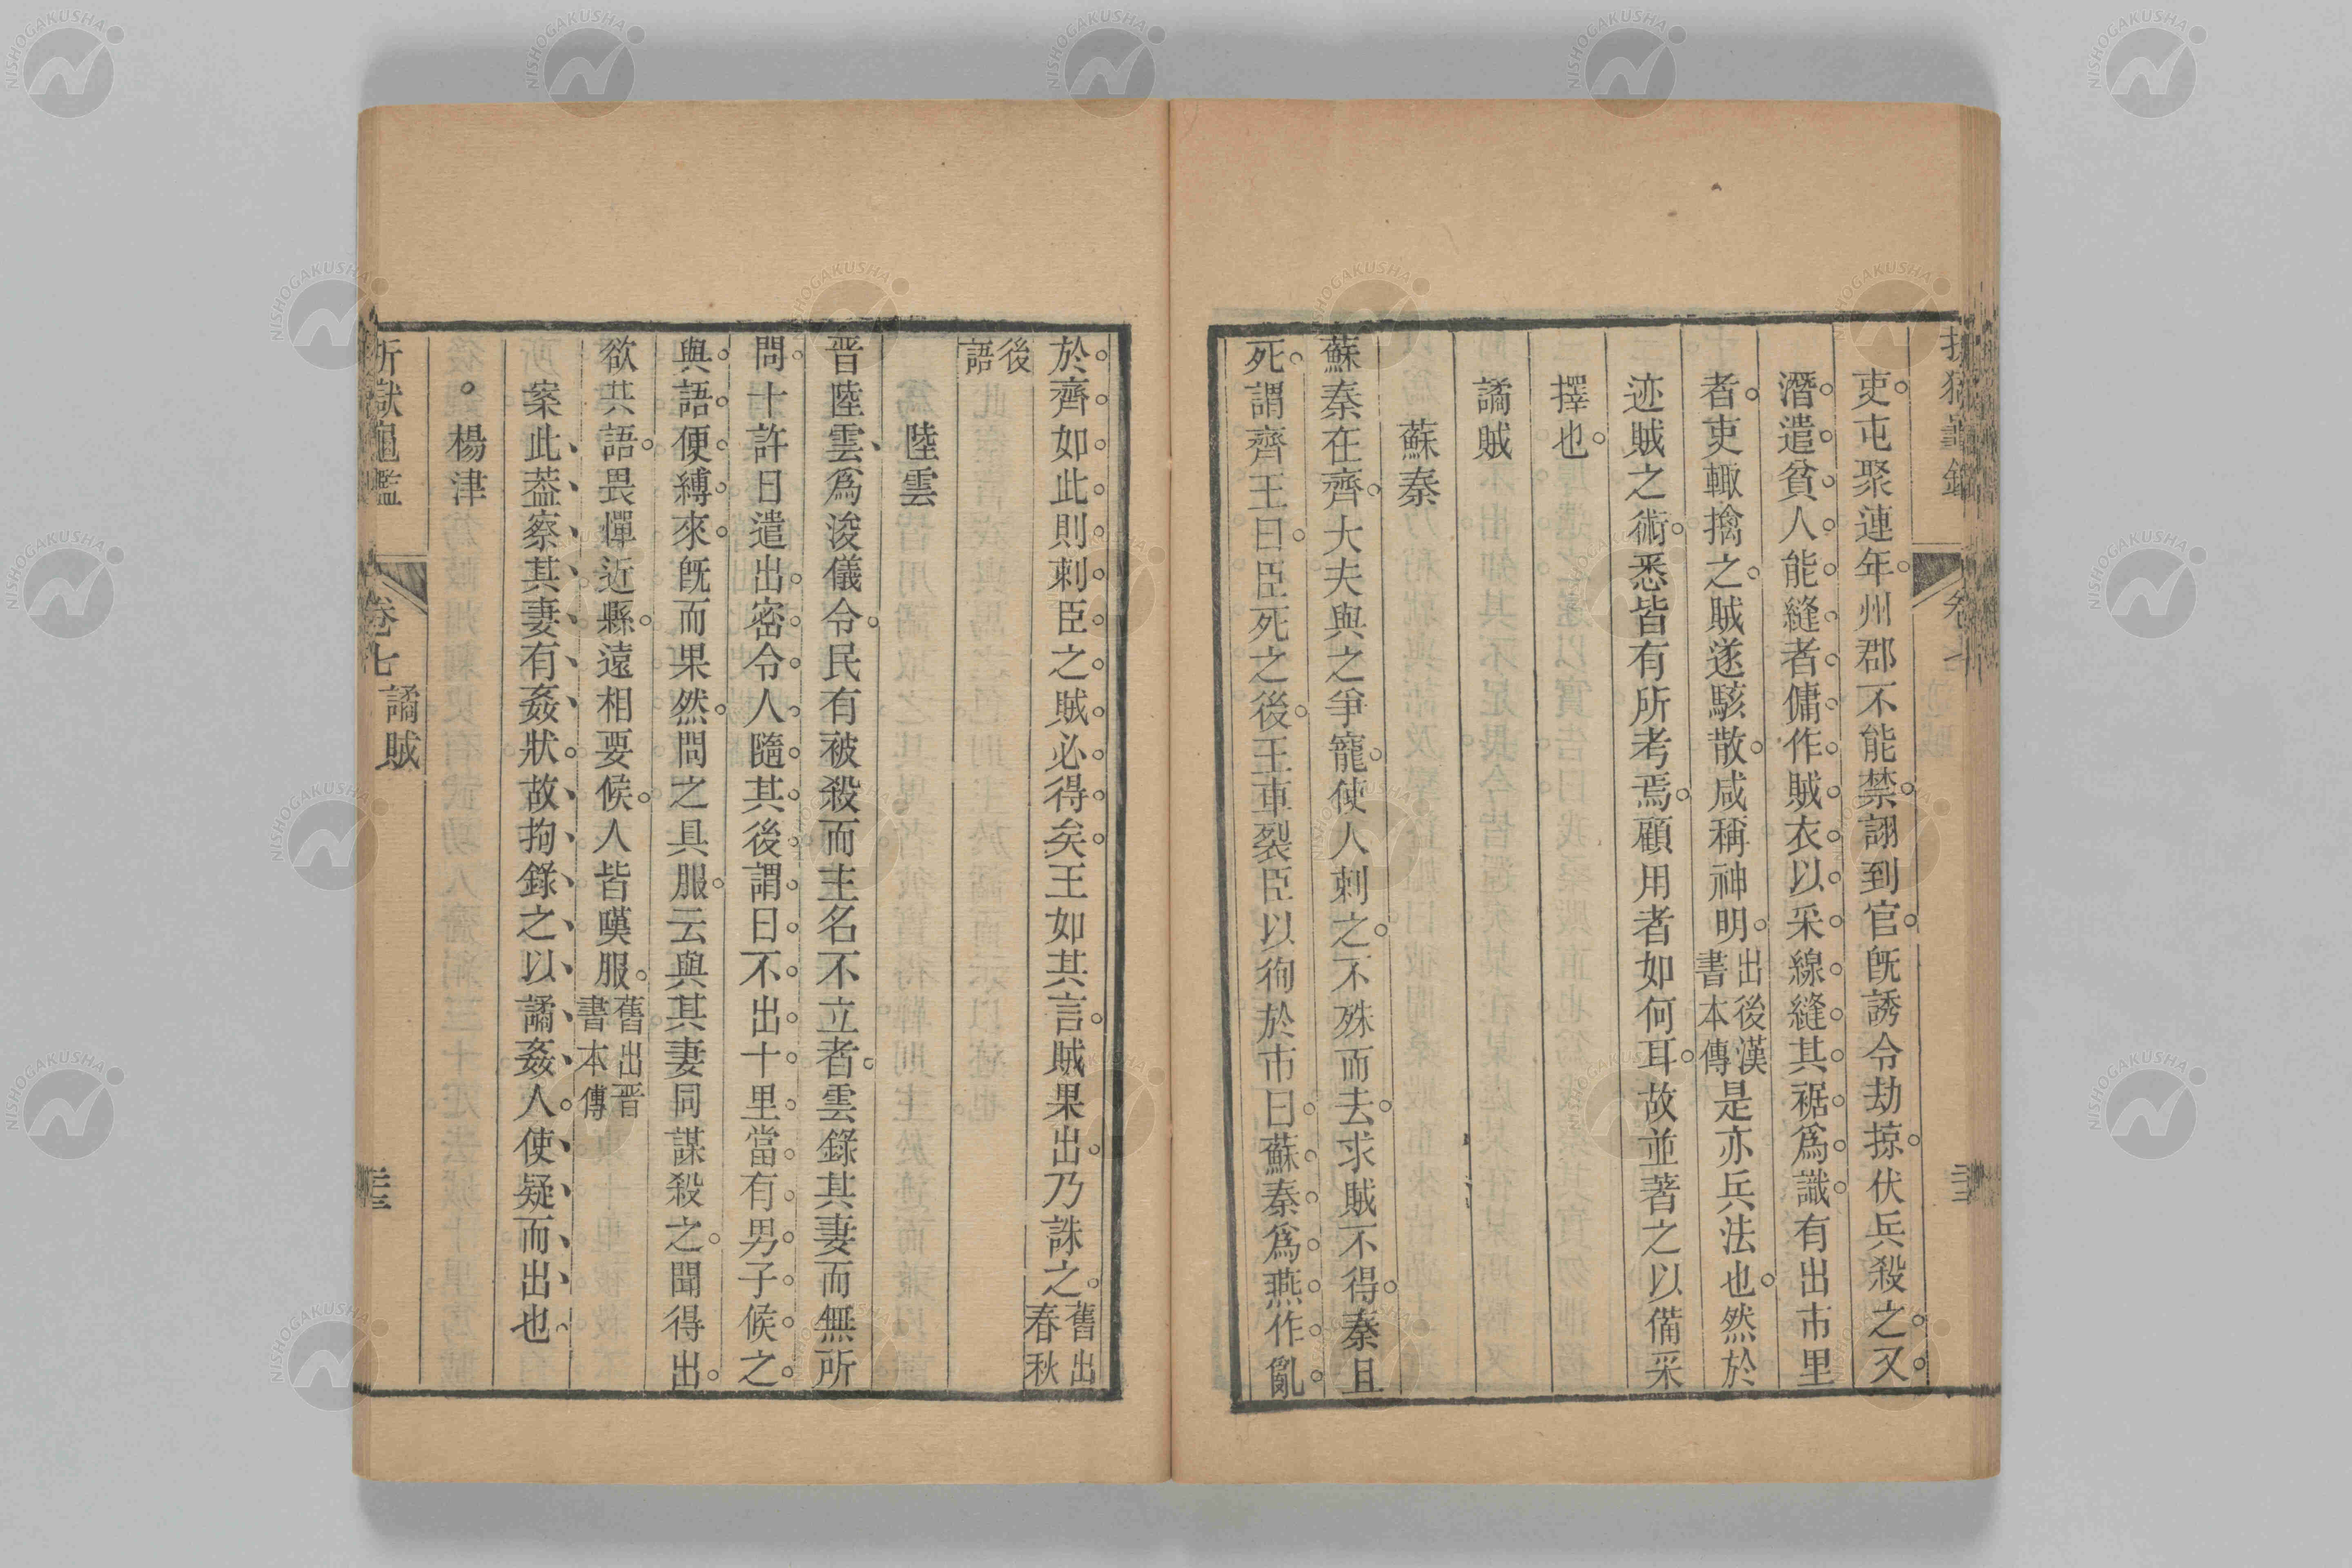 吏屯聚連年州郡不能禁詡到官旣誘令劫掠伏兵殺之又
潛遣貧人能縫者傭作賊衣以采線縫其裾爲識有出市里
者吏輙擒之賊遂駭散咸稱神明出後漢書本傳是亦兵法也然於
迹賊之術悉皆有所考焉顧用者如何耳故並著之以備采
擇也
譎賊
蘇秦
蘇秦在齊大夫與之爭寵使人刺之不殊而去求賊不得秦且
死謂齊王曰臣死之後王車裂臣以徇於市曰蘇秦爲燕作亂
於齊如此則刺臣之賊必得矣王如其言賊果出乃誅之舊出春秋
後語
陸雲
晋陸雲爲浚儀令民有被殺而主名不立者雲錄其妻而無所
問十許日遣出密令人隨其後謂曰不出十里當有男子候之
與語便縛來旣而果然問之具服云與其妻同謀殺之聞得出
欲共語畏憚近縣遠相要候人皆嘆服舊出晋書本傳
案此葢察其妻有姦狀故拘錄之以譎姦人使疑而出也
楊津
折獄龜鑑 卷七 譎賊
NISHOGAKUSHA